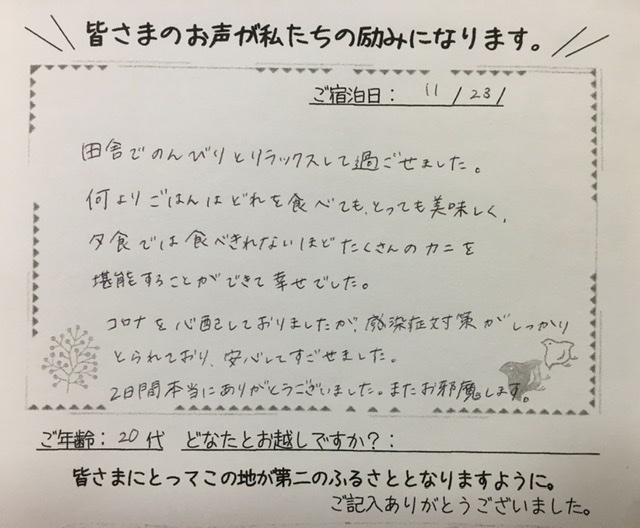 皆さまのお声が私たちの励みになります。
ご宿泊日： 11 / 23 /
田舎でのんびりとリラックスして過ごせました。
何よりごはんはどれを食べても、とっても美味しく、
夕食では食べきれないほどたくさんのカニを
堪能することができて幸せでした。
コロナを心配しておりましたが、感染症対策がしっかり
とられており、安心してすごせました。
2日間本当にありがとうございました。またお邪魔します。
ご年齢：20代 どなたとお越しですか？：
皆さまにとってこの地が第二のふるさととなりますように。
ご記入ありがとうございました。